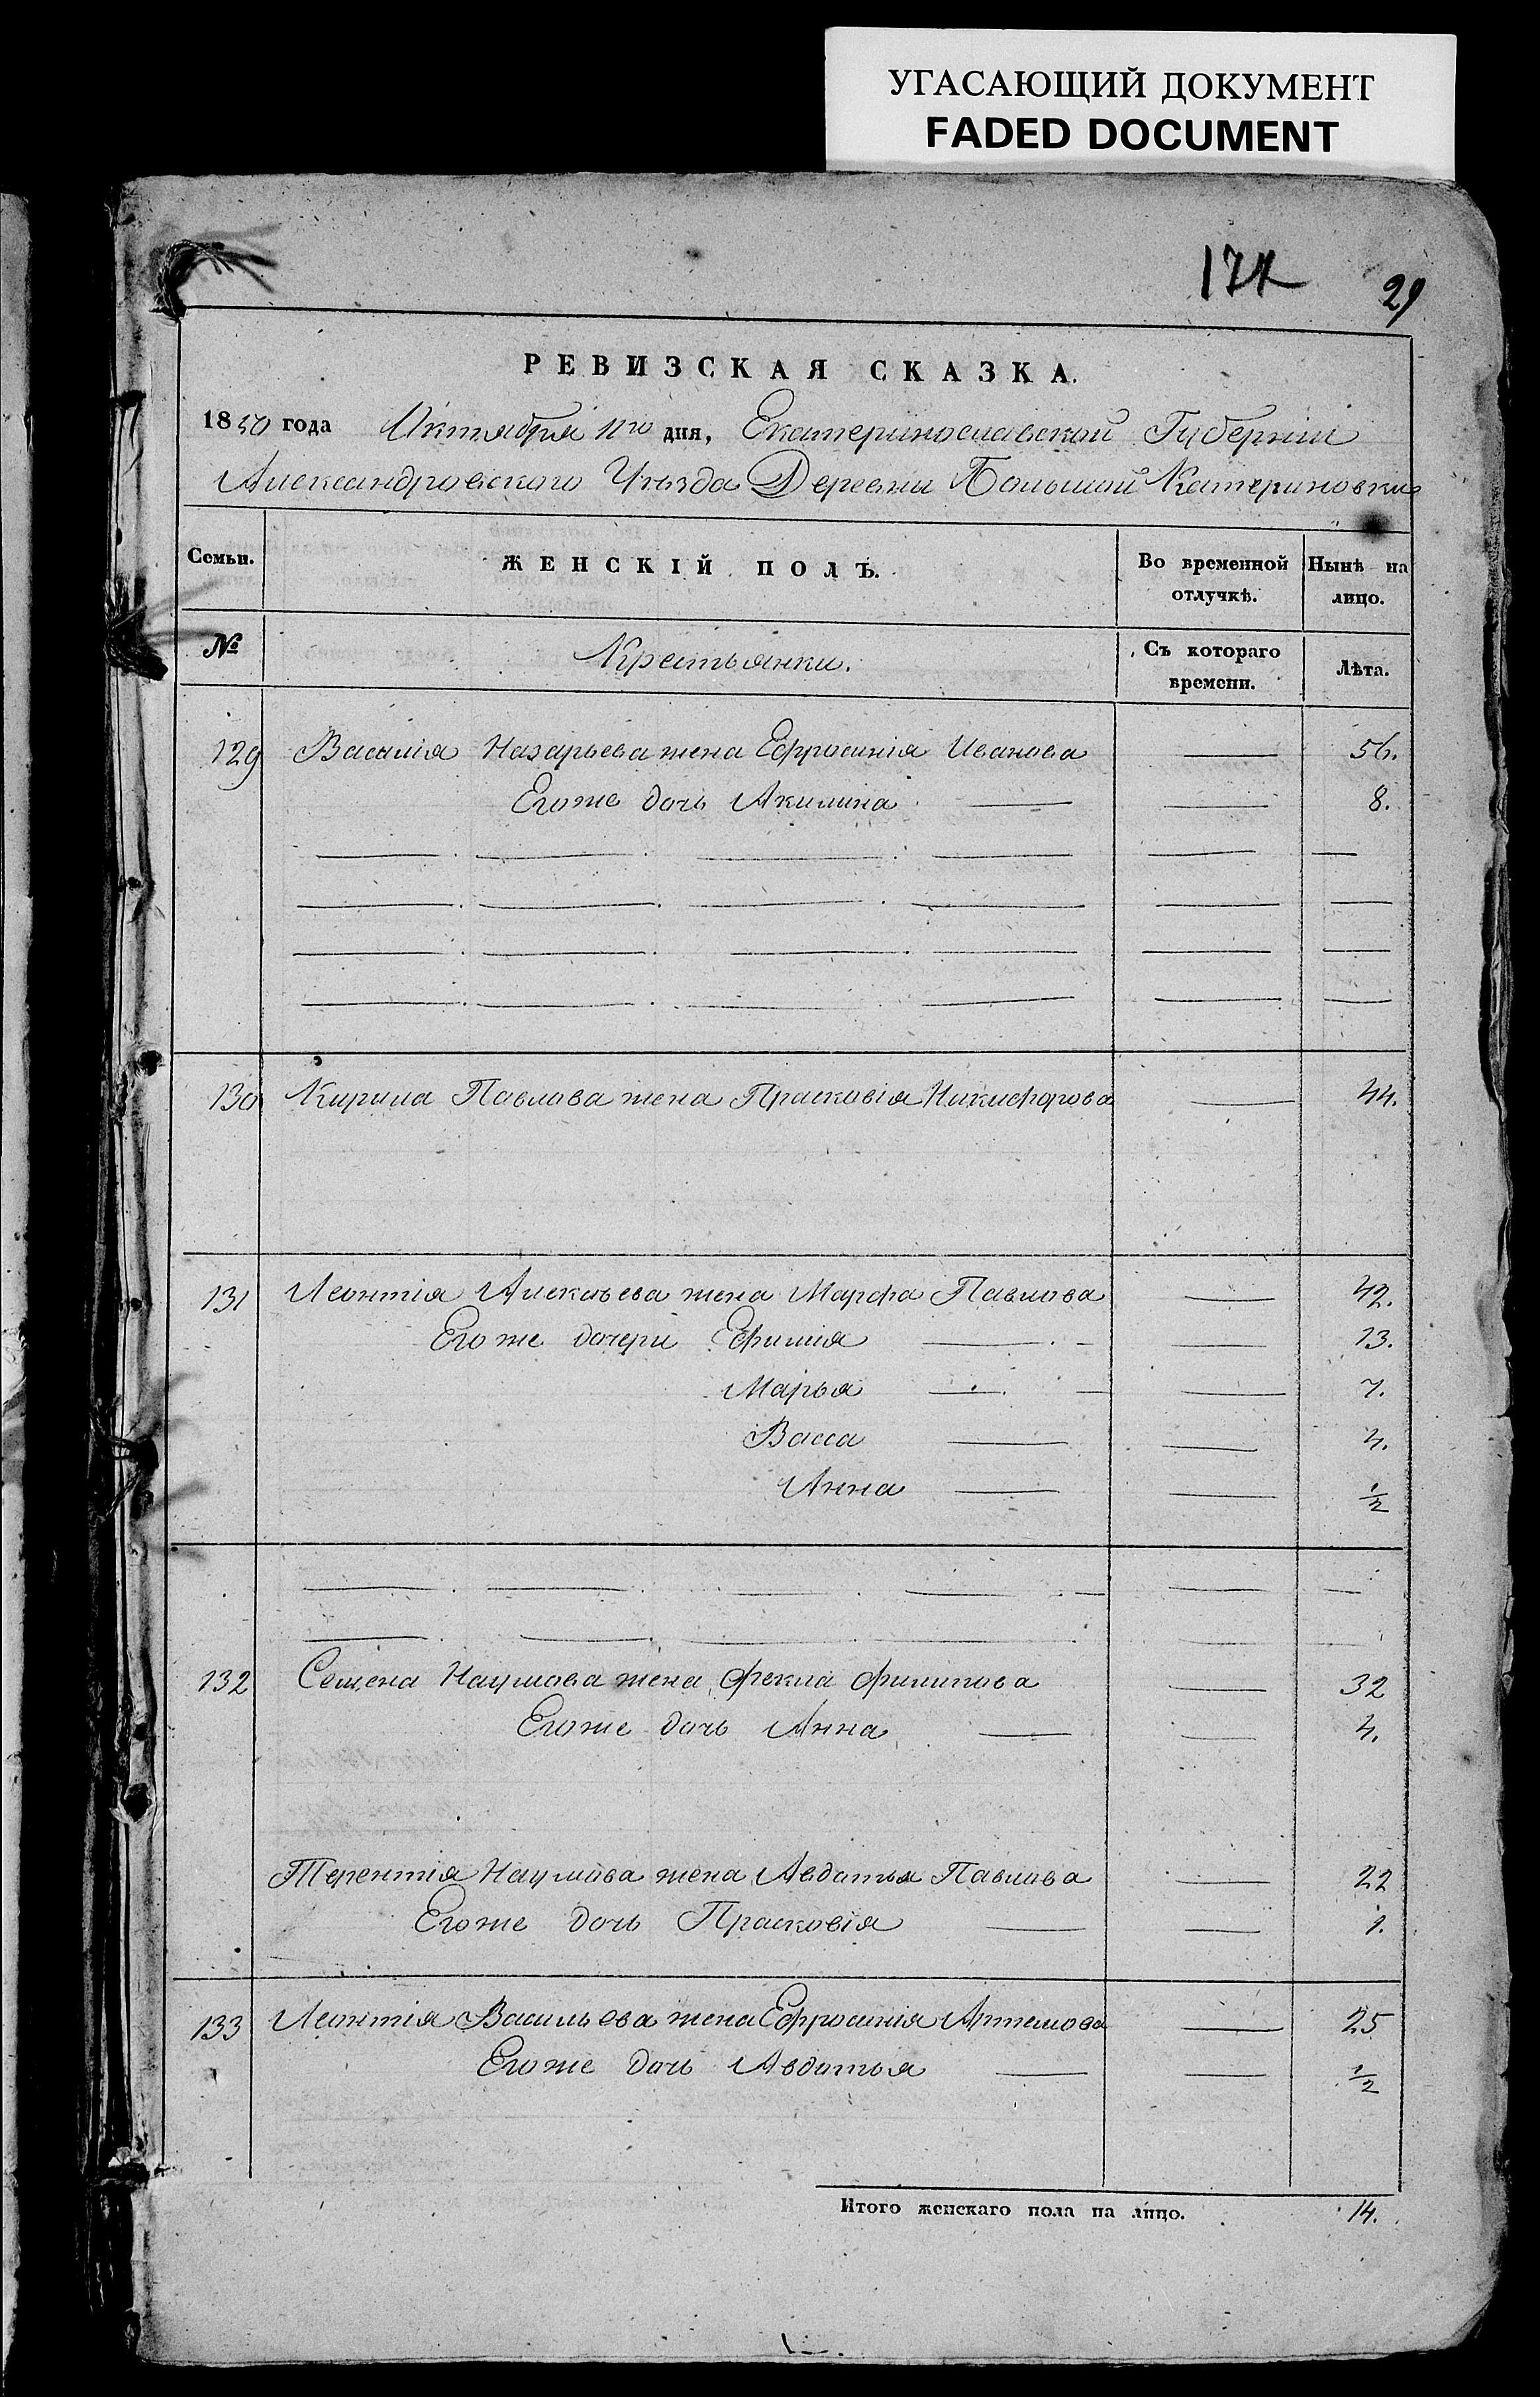 УГАСАЮЩИЙ ДОКУМЕНТ
FADED DOCUMENT
174 29
РЕВИЗСКАЯ СКАЗКА.
1850 года Октября 11го дня, Екатеринославской Губерніи
Александровского Уѣзда Деревни Большой Катериновки
Семьи. ЖЕНСКІЙ ПОЛЪ. Во временной отлучкѣ. Нынѣ на лицо.
№ Крестьянки. Съ котораго времени. Лѣта.
129 Василія Назарьева жена Ефросинія Иванова — 56.
Егоже дочь Акилина — — 8.
130 Кирила Павлова жена Прасковія Никифорова — 44.
131 Леонтія Алексѣева жена Марфа Павлова — 42.
Его же дочери Ефимія — — 13.
Марья — — 7.
Васса — — 4.
Анна — — 1/2
132 Семена Наумова жена Фекла Филипова — 32
Егоже дочь Анна — — 4.
Терентія Наумова жена Авдотья Павлова — 22
Егоже дочь Прасковія — — 1.
133 Леонтія Васильева жена Ефросинія Артемова — 25
Егоже дочь Авдотья — — 1/2
Итого женскаго пола на лицо. 14.